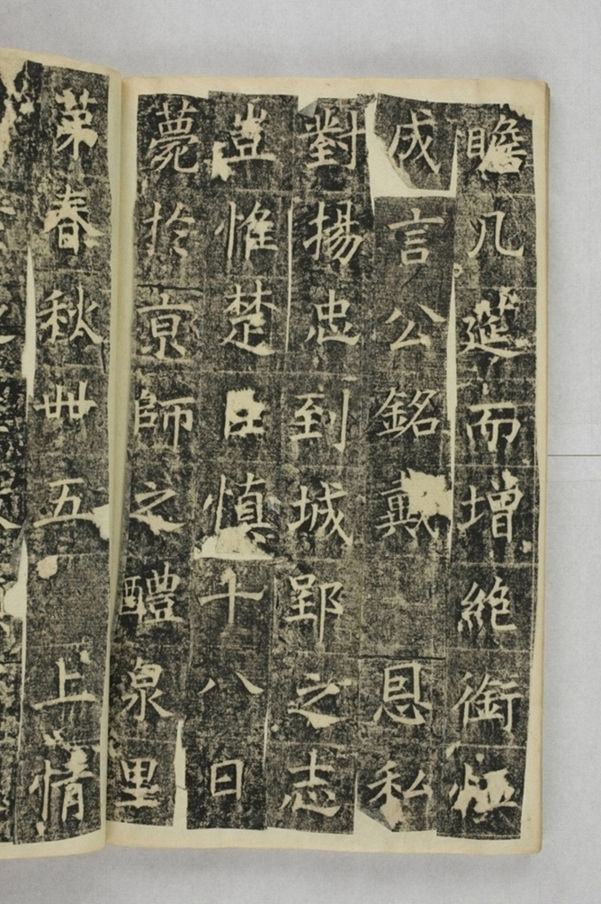 瞻几筵而增絶銜
成言公銘戴 恩私
對揚忠到城郢之志
豈惟楚臣慎十八日
薨於京師之醴泉里
苐春秋卌五 上情